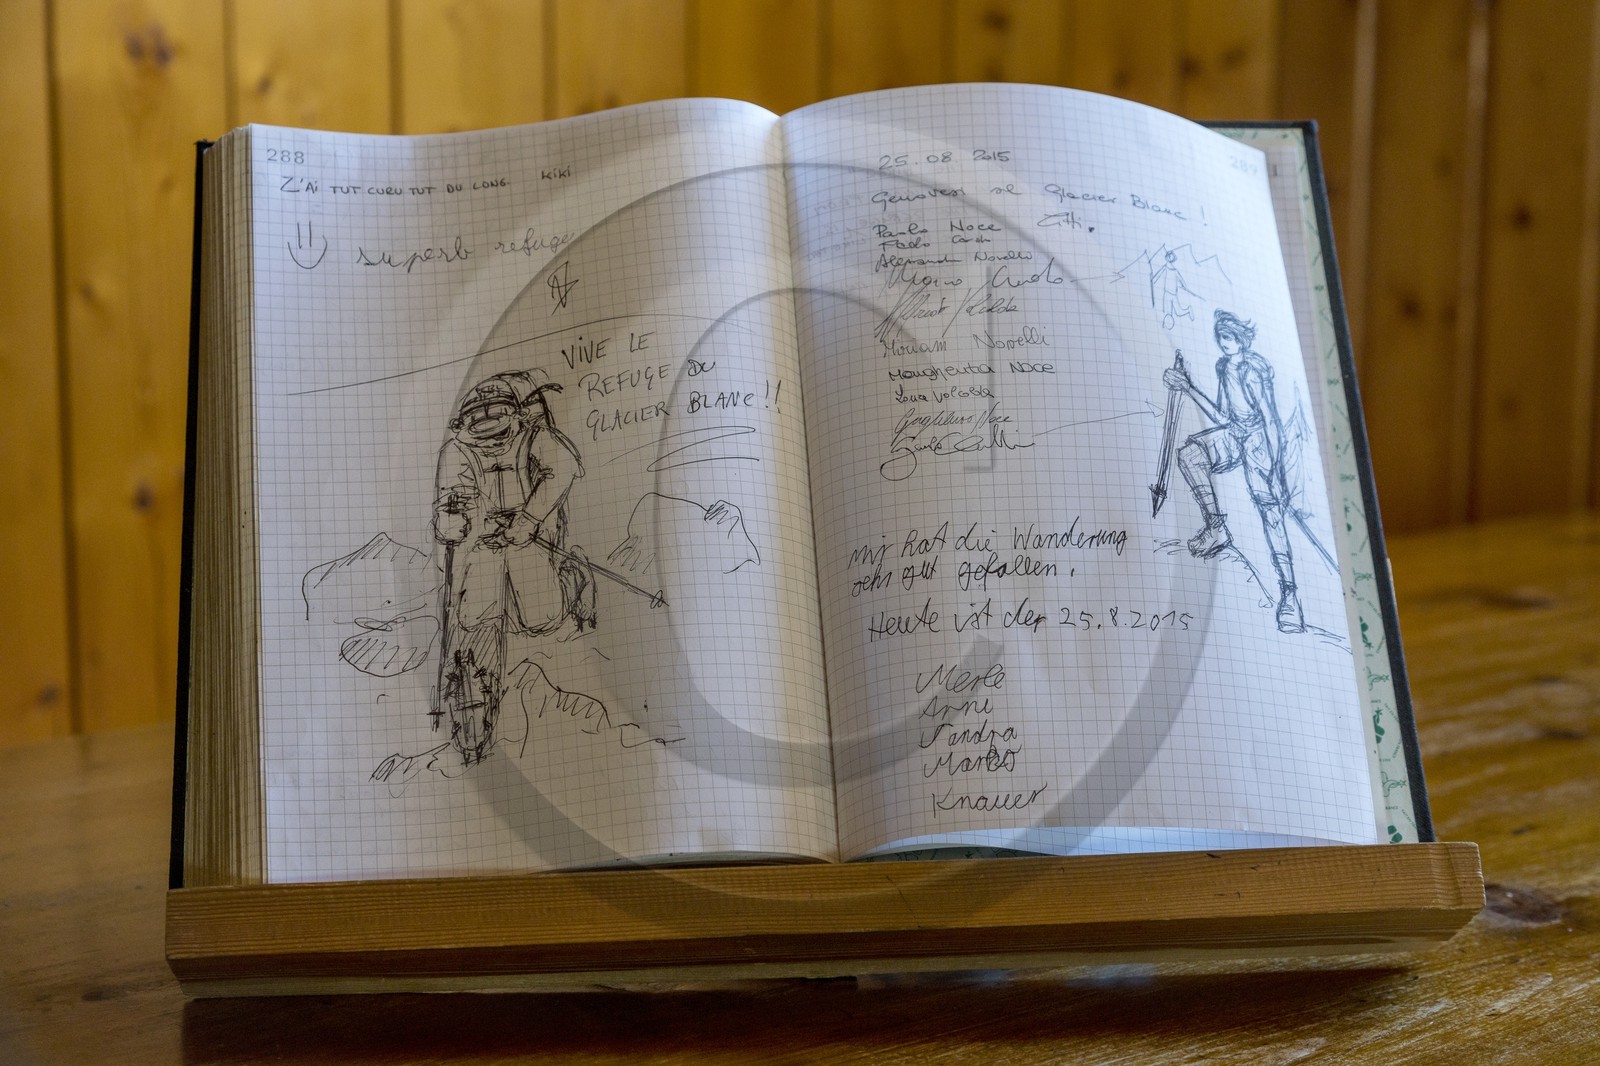 288
Z'AI TUT CURU TUT DU LONG KIKI
superb refuge
VIVE LE
REFUGE DU
GLACIER BLANC!!
289
25.08 2015
Genovesi al Glacier Blanc!
Paolo Noce
Paolo
Novello
Miriam Novelli
Margherita Noce
Guglielmo Noce
Mir hat die Wanderung
sehr gut gefallen.
Heute ist der 25.8.2015
Merle
Arni
Sandra
Marko
Knauer